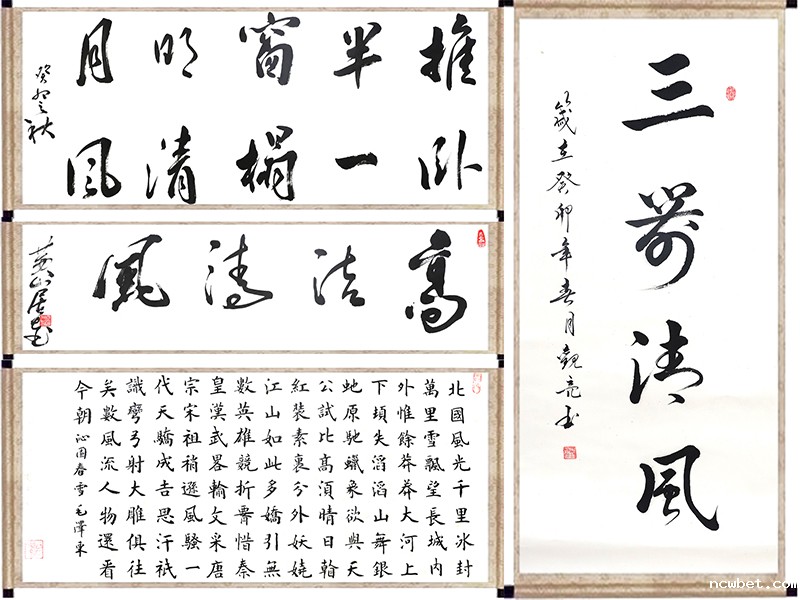 推半窗明月
卧一榻清風
癸卯秋
高洁清風
北國風光千里冰封
萬里雪飄望長城内
外惟餘莽莽大河上
下頓失滔滔山舞銀
蛇原馳蠟象欲與天
公試比高須晴日看
紅裝素裹分外妖嬈
江山如此多嬌引無
數英雄競折腰惜秦
皇漢武畧輸文采唐
宗宋祖稍遜風騷一
代天驕成吉思汗祇
識彎弓射大雕俱往
矣數風流人物還看
今朝 沁园春雪毛澤東
三清風
歲立癸卯年春月觀亮书
ncwbet.com